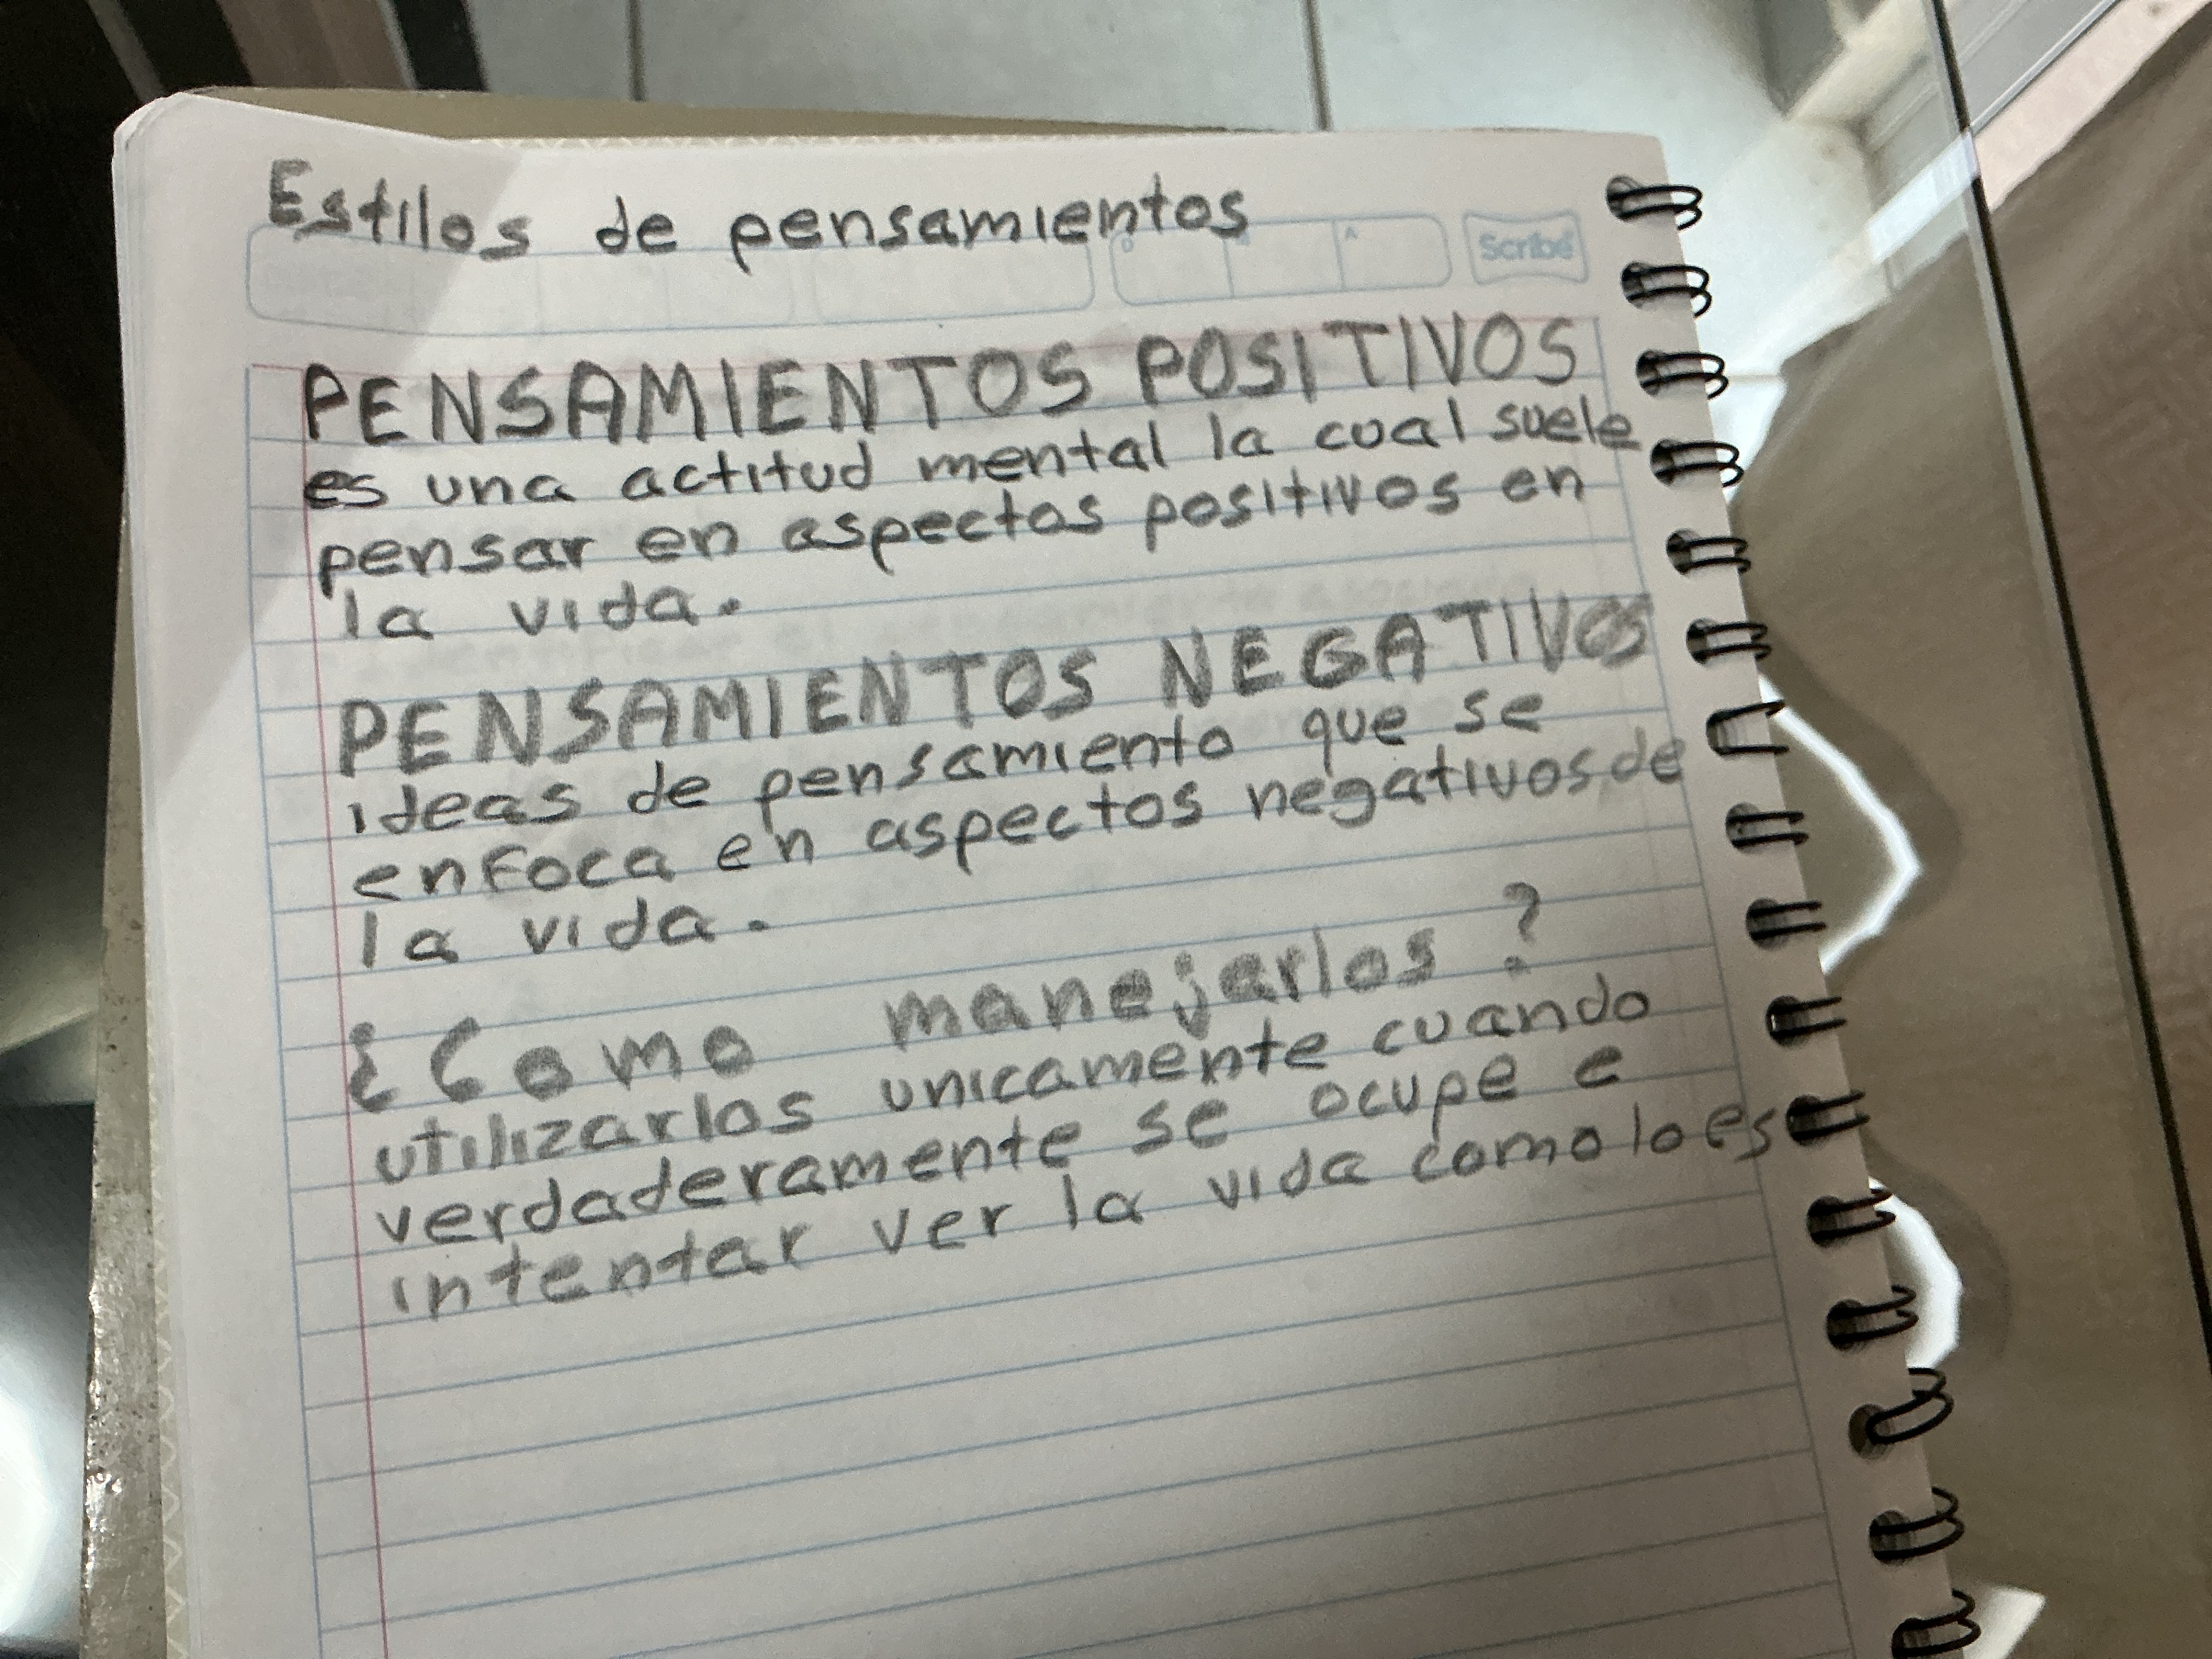 Estilos de pensamientos
Scribe
PENSAMIENTOS POSITIVOS
es una actitud mental la cual suele
pensar en aspectos positivos en
la vida.
PENSAMIENTOS NEGATIVOS
ideas de pensamiento que se
enfoca en aspectos negativos de
la vida.
¿Como manejarlos?
utilizarlos unicamente cuando
verdaderamente se ocupe e
intentar ver la vida como lo es